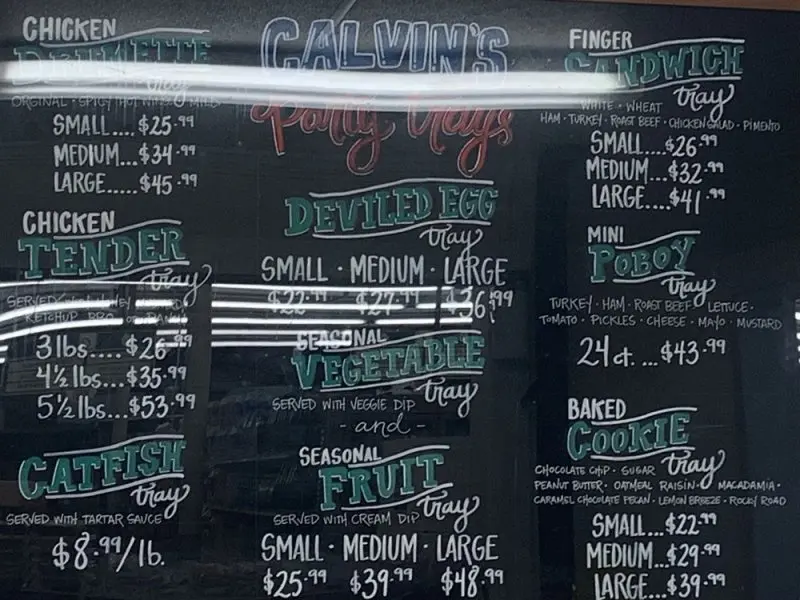 CALVIN'S
Party Trays
CHICKEN
DRUMMETTE
tray
ORGINAL · SPICY HOT WINGS · MILD
SMALL.... $25.99
MEDIUM... $34.99
LARGE..... $45.99
CHICKEN
TENDER
tray
SERVED WITH HONEY MUSTARD
KETCHUP BBQ OR RANCH
3 lbs.... $26.99
4½ lbs... $35.99
5½ lbs... $53.99
CATFISH
tray
SERVED WITH TARTAR SAUCE
$8.99/lb.
DEVILED EGG
tray
SMALL · MEDIUM · LARGE
$22.99 $27.99 $36.99
SEASONAL
VEGETABLE
tray
SERVED WITH VEGGIE DIP
- and -
SEASONAL
FRUIT
tray
SERVED WITH CREAM DIP
SMALL · MEDIUM · LARGE
$25.99 $39.99 $48.99
FINGER
SANDWICH
tray
WHITE · WHEAT
HAM · TURKEY · ROAST BEEF · CHICKEN SALAD · PIMENTO
SMALL....$26.99
MEDIUM...$32.99
LARGE....$41.99
MINI
POBOY
tray
TURKEY · HAM · ROAST BEEF · LETTUCE ·
TOMATO · PICKLES · CHEESE · MAYO · MUSTARD
24 ct. ... $43.99
BAKED
COOKIE
tray
CHOCOLATE CHIP · SUGAR
PEANUT BUTTER · OATMEAL RAISIN · MACADAMIA ·
CARAMEL CHOCOLATE PECAN · LEMON BREEZE · ROCKY ROAD
SMALL...$22.99
MEDIUM...$29.99
LARGE...$39.99